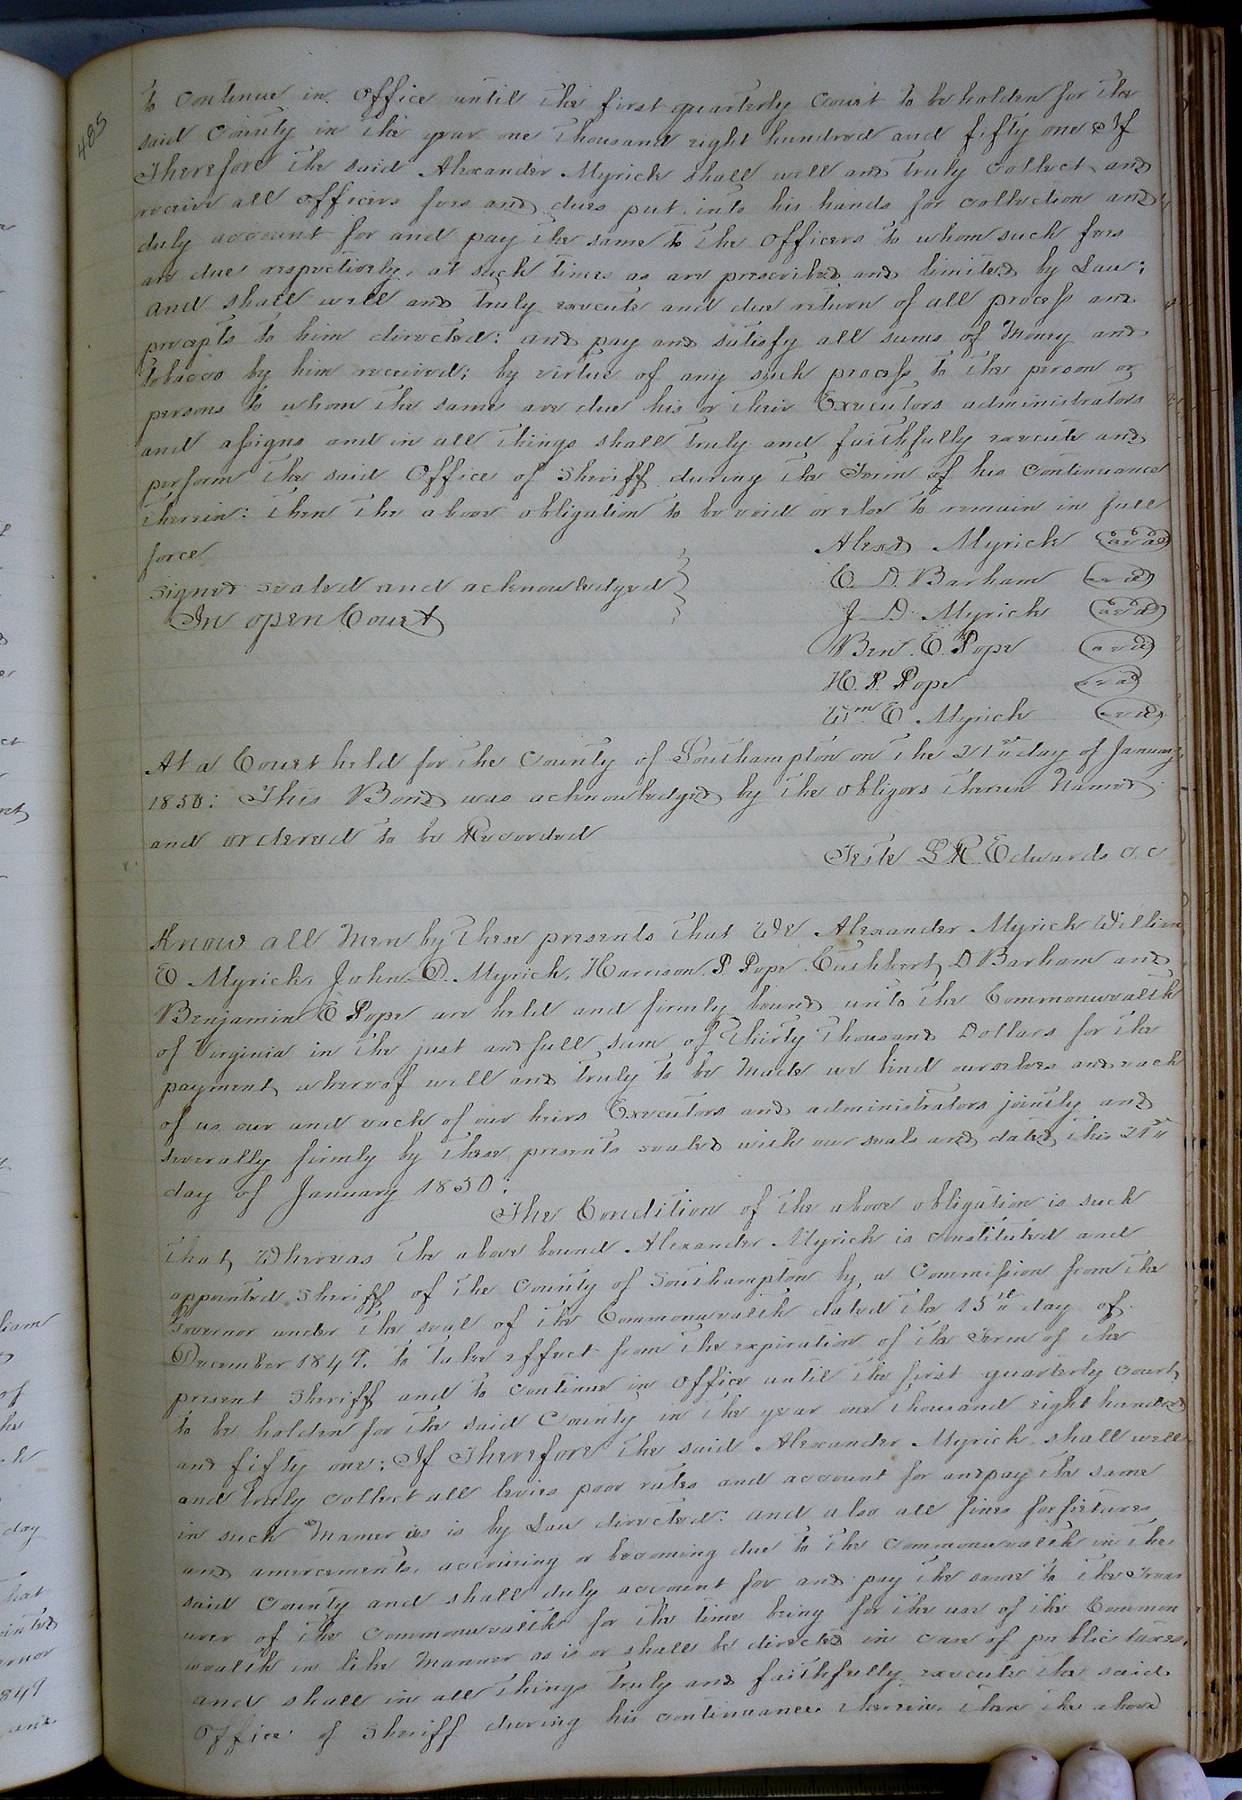 485
to continue in office until the first quarterly Court to be holden for the
said County in the year one thousand eight hundred and fifty one If
Therefore the said Alexander Myrick shall well and truly collect and
receive all officers fees and dues put into his hands for collection and
duly account for and pay the same to the officers to whom such fees
are due respectively, at such times as are prescribed and limited by Law;
and shall well and truly execute and due return of all process and
precepts to him directed: and pay and satisfy all sums of Money and
Tobacco by him received; by virtue of any such process to the person or
persons to whom the same are due his or their Executors administrators
and assigns and in all things shall truly and faithfully execute and
perform the said Office of Sheriff during the Term of his continuance
therein: then the above obligation to be void or else to remain in full
force
Alexd Myrick (seal)
signed sealed and acknowledged
C. D. Barham (seal)
In open Court
J. D. Myrick (seal)
Ben. E. Pope (seal)
H. P. Pope (seal)
Wm E Myrick (seal)
At a Court held for the County of Southampton on the 21st day of January
1850: This Bond was acknowledged by the obligors therein Named
and ordered to be Recorded
Teste L R. Edwards C. C
Know all Men by these presents that We Alexander Myrick William
E Myrick, John D. Myrick, Harrison P. Pope Cuthbert D Barham and
Benjamin E Pope are held and firmly bound unto the Commonwealth
of Virginia in the just and full sum of Thirty Thousand Dollars for the
payment whereof well and truly to be Made we bind ourselves and each
of us our and each of our heirs Executors and administrators jointly and
severally firmly by these presents sealed with our seals and dated this 21st
day of January 1850:
The Condition of the above obligation is such
that, Whereas the above bound Alexander Myrick is constituted and
appointed Sheriff of the County of Southampton by a Commission from the
Governor under the seal of the Commonwealth dated the 15th day of
December 1849. to take effect from the expiration of the Term of the
present Sheriff and to continue in office until the first quarterly Court
to be holden for the said County in the year one thousand eight hundred
and fifty one; If Therefore the said Alexander Myrick shall well
and truly collect all levies poor rates and account for and pay the same
in such Manner as is by Law directed: and also all fines forfeitures
and amercements, accruing or becoming due to the Commonwealth in the
said County and shall duly account for and pay the same to the Treas
urer of the Commonwealth for the time being for the use of the Common
wealth in like Manner as is or shall be directed in case of public taxes,
and shall in all things truly and faithfully execute the said
Office of Sheriff during his continuance therein, then the above